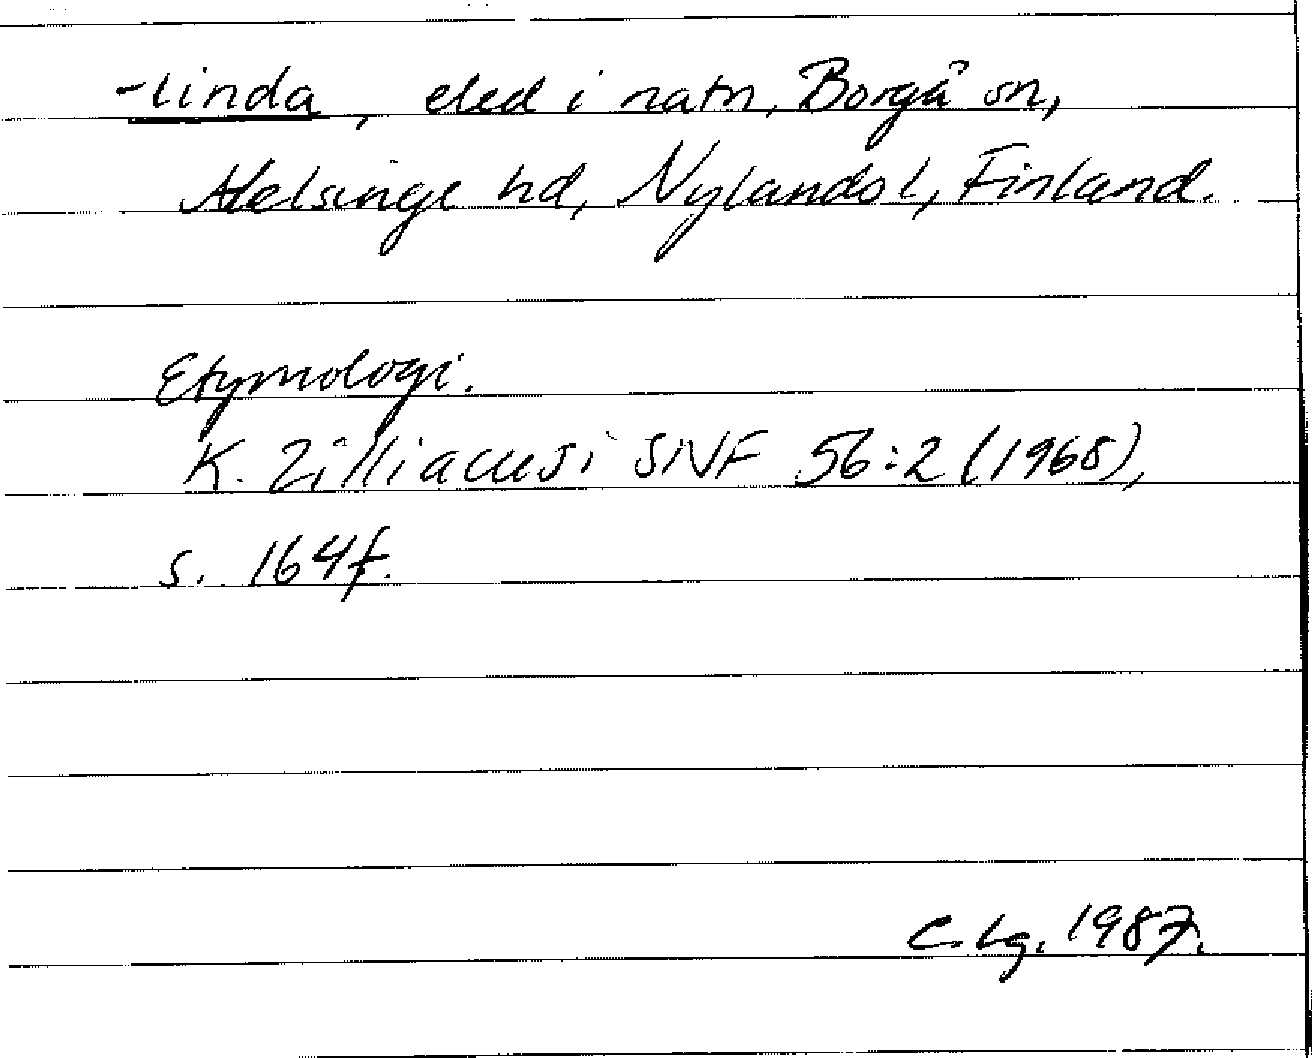 -linda, eled i natn, Borgå sn,
Helsinge hd, Nylands l, Finland.
Etymologi.
K. Zilliacus i SNF 56:2 (1968),
s. 164 f.
C. Lg. 1987.